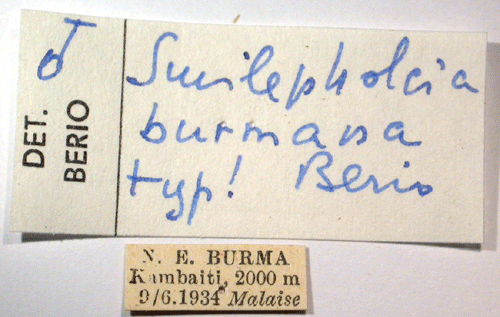 ♂
DET.
BERIO
Smilepholcia
burmana
typ! Berio
N. E. BURMA
Kambaiti, 2000 m
9/6.1934 Malaise